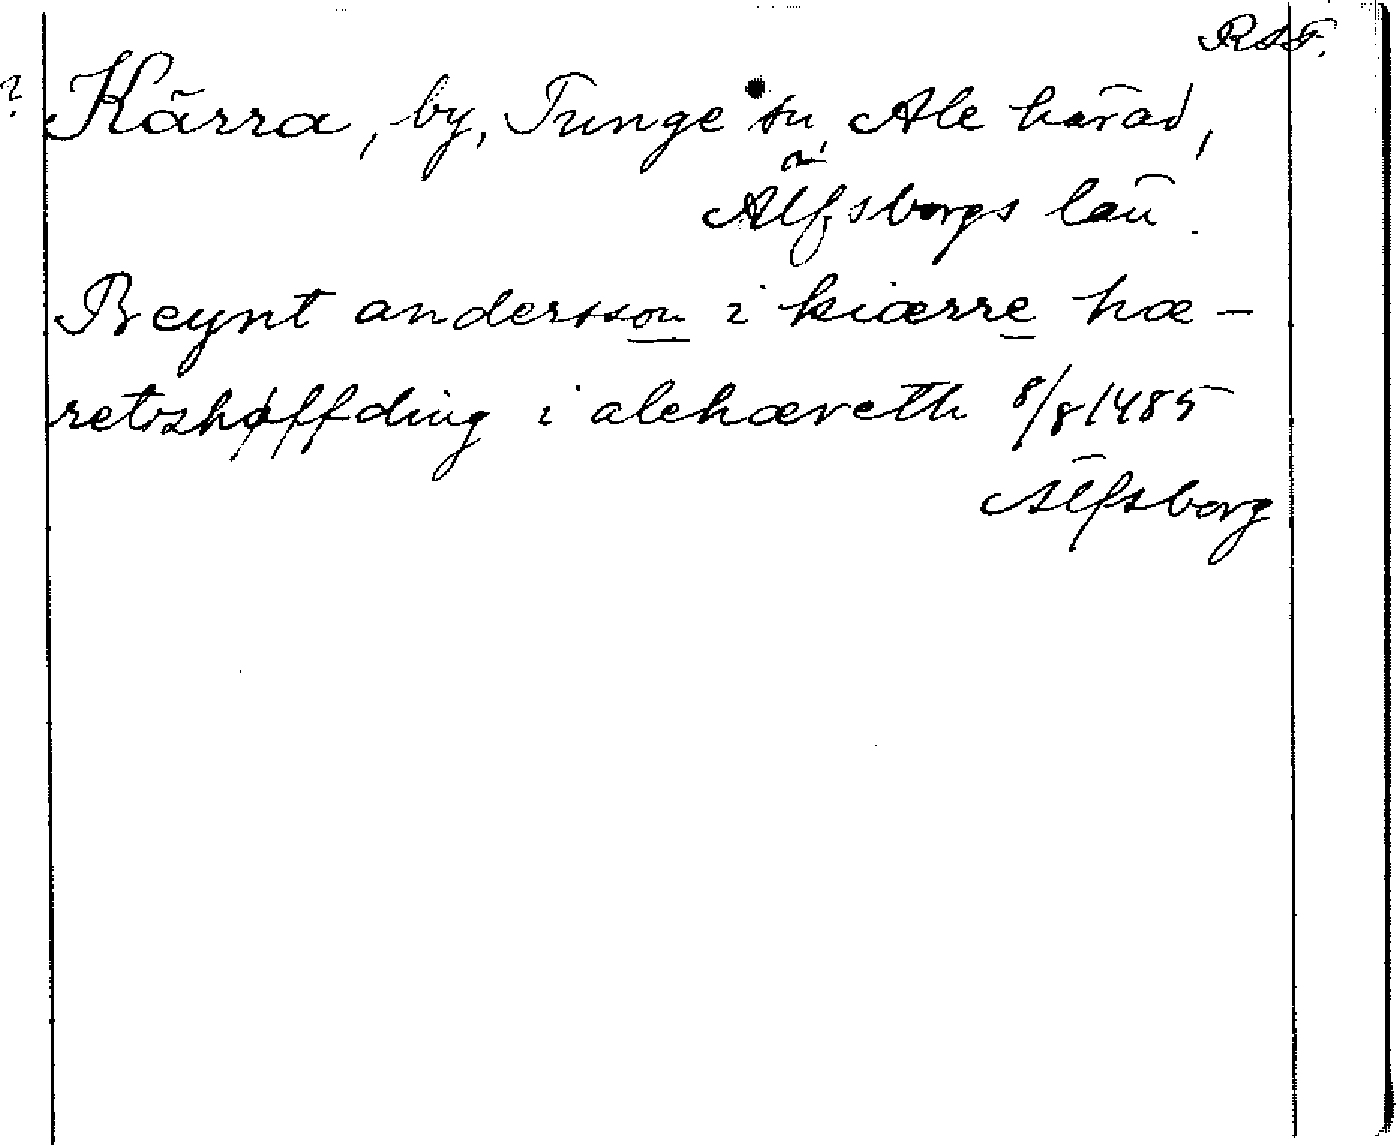 RAT.
? Kärra, by, Tunge sn, Ale härad,
Älfsborgs län.
Beynt andersson i kiærre hæ-
retzhøffding i alehæreth 8/8 1485
Älfsborg